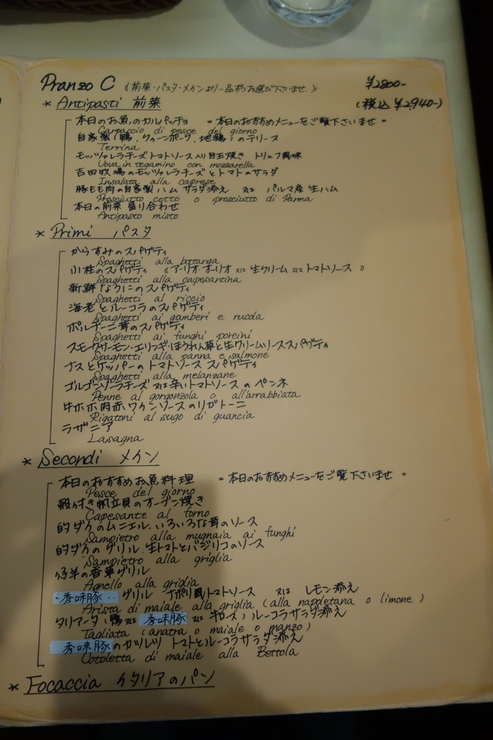 Pranzo C (前菜・パスタ・メインより一品ずつお選び下さいませ) ¥2800-
* Antipasti 前菜 (税込 ¥2,940-)
本日のお魚のカルパッチョ 〃本日のおすすめメニューをご覧下さいませ〃
Carpaccio di pesce del giorno
自家製(鴨、クィーンポーク、地鶏)のテリーヌ
Terrina
モッツァレラチーズトマトソース入り目玉焼き トリュフ風味
Uova in tegamino con mozzarella
吉田牧場のモッツァレラチーズとトマトのサラダ
Insalata alla caprese
豚もも肉の自家製ハム サラダ添え 又は パルマ産生ハム
Prosciutto cotto o prosciutto di Parma
本日の前菜盛り合わせ
Antipasto misto
* Primi パスタ
からすみのスパゲティ
Spaghetti alla batarga
小柱のスパゲティ 《アーリオオーリオ 又は 生クリーム 又は トマトソース》
Spaghetti alla capesantina
新鮮なウニのスパゲティ
Spaghetti al riccio
海老とルーコラのスパゲティ
Spaghetti ai gamberi e rucola
ポルチーニ茸のスパゲティ
Spaghetti ai funghi porcini
スモークサーモン・エリンギ・ほうれん草と生クリームソーススパゲティ
Spaghetti alla panna e salmone
ナスとケッパーのトマトソース スパゲティ
Spaghetti alla melanzane
ゴルゴンゾーラチーズ 又は 辛いトマトソースの ペンネ
Penne al gorgonzola o all'arrabbiata
牛ホホ肉赤ワインソースのリガトーニ
Rigatoni al sugo di guancia
ラザニア
Lasagna
* Secondi メイン
本日のおすすめお魚料理 〃本日のおすすめメニューをご覧下さいませ〃
Pesce del giorno
殻付き帆立貝のオーブン焼き
Capesante al forno
的ダイのムニエル、いろいろな茸のソース
Sampietro alla mugnaia ai funghi
的ダイのグリル 生トマトとバジリコのソース
Sampietro alla griglia
仔羊の香草グリル
Agnello alla griglia
香味豚 グリル ナポリ風トマトソース 又は レモン添え
Arista di maiale alla griglia (alla napoletana o limone)
タリアータ (鴨 又は 香味豚 又は 牛ロース) ルーコラサラダ添え
Tagliata (anatra o maiale o manzo)
香味豚のカツレツ トマトとルーコラサラダ添え
Cotoletta di maiale alla Bettola
* Focaccia イタリアのパン